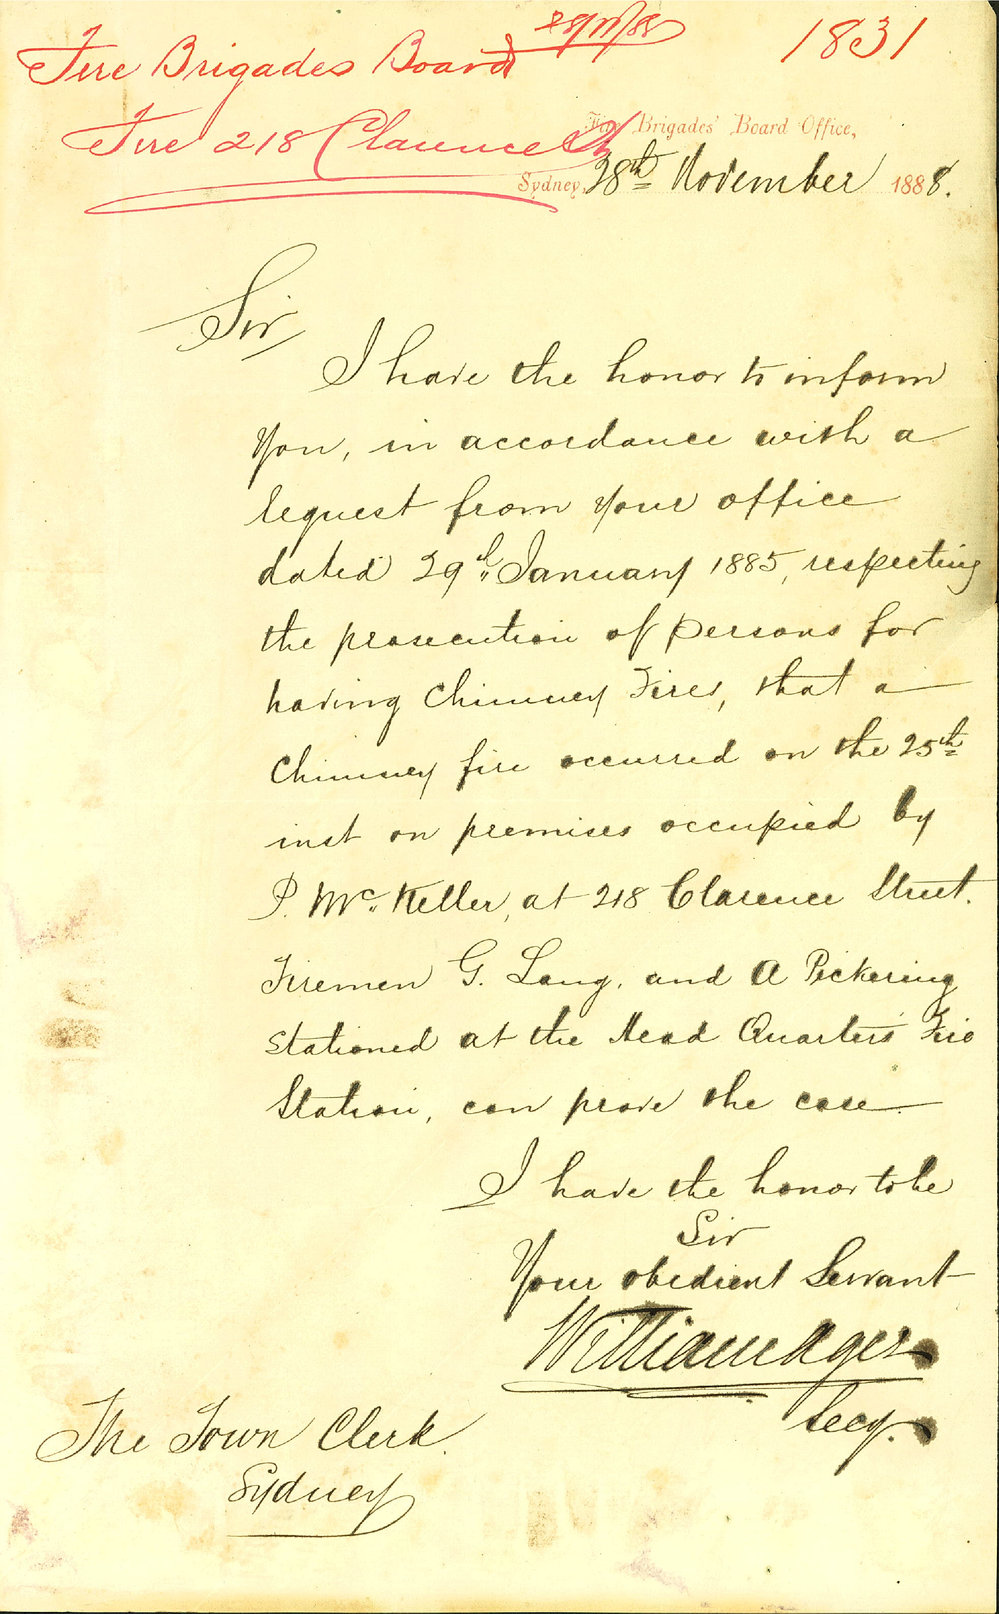 28/11/88
Fire Brigades Board
1831
Fire 218 Clarence St
Fire Brigades' Board Office,
Sydney, 28th November 1888.
Sir
I have the honor to inform
you, in accordance with a
request from your office
dated 29th January 1885, respecting
the prosecution of persons for
having Chimney Fires, that a
Chimney fire occurred on the 25th
inst on premises occupied by
P. McKeller, at 218 Clarence Street.
Firemen G. Lang, and A Pickering
stationed at the Head Quarters Fire
Station, can prove the case.
I have the honor to be
Sir
Your obedient Servant
William Ager
Secy.
The Town Clerk.
Sydney